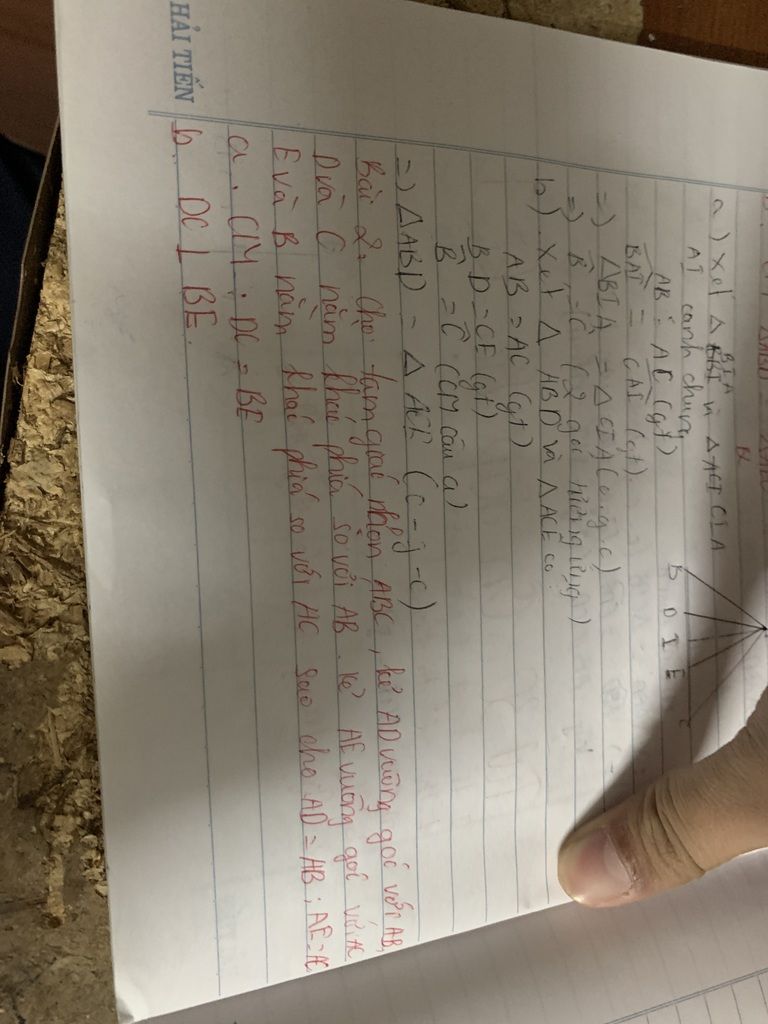 HẢI TIẾN
a) Xét Δ BIA và Δ CIA
AI cạnh chung
AB = AC (gt)
BAI = CAI (gt)
=) ΔBIA = ΔCIA (c.g.c)
=) B = C (2 góc tương ứng)
b) Xét Δ ABD và ΔACE có:
AB = AC (gt)
BD = CE (gt)
B = C (CM câu a)
=) ΔABD = Δ ACE (c-g-c)
Bài 2. Cho tam giác nhọn ABC, kẻ AD vuông góc với AB,
D và C nằm khác phía so với AB. kẻ AE vuông góc với AC
E và B nằm khác phía so với AC sao cho AD = AB; AE = AC
a. CM: DC = BE
b. DC ⊥ BE.
B D I E C